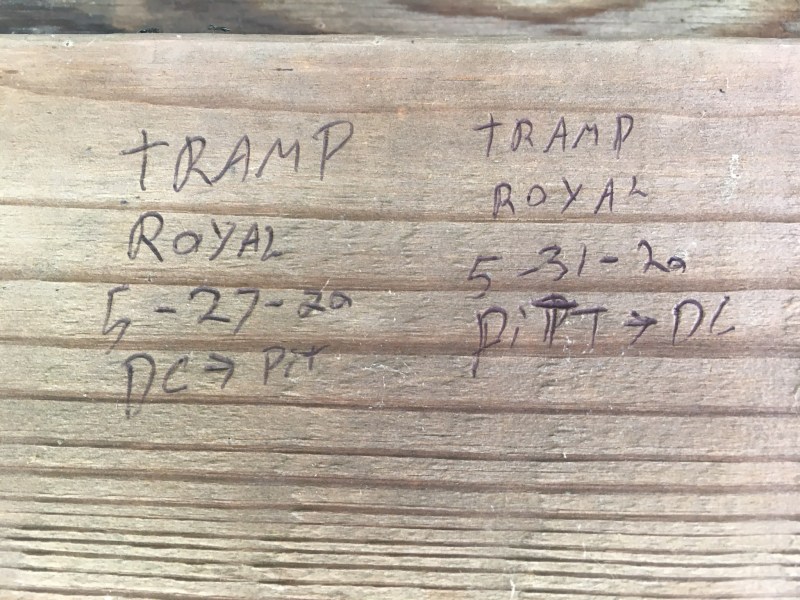 TRAMP
ROYAL
5-27-20
DC → PiT
TRAMP
ROYAL
5-31-20
PiTT → DC